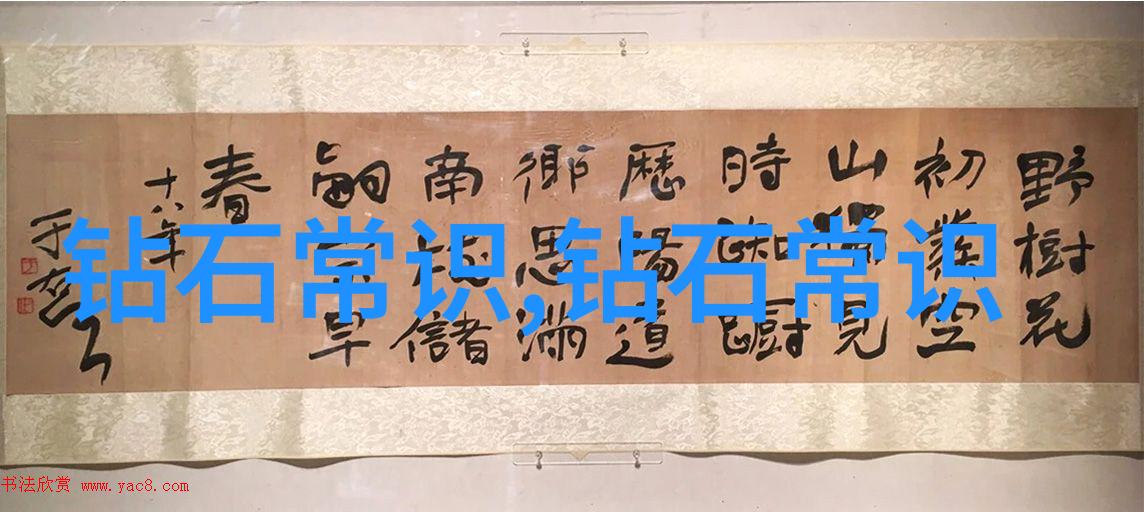 野樹花
初發空
山獨見
時踟躕
歷陽道
鄉思滿
南枝儲
嗣宗早
春
十八年
于右任
钻石常识,钻石常识
书法欣赏 www.yac8.com